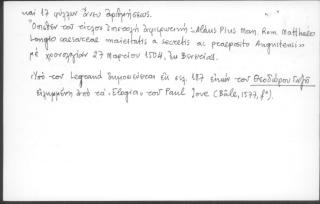 καὶ 17 φύλλων ἄνευ ἀριθμήσεως.
Ὄπισθεν τοῦ τίτλου ἐπιστολὴ ἀφιερωτική: «Aldus Pius Man. Rom. Matthaeo
Longio caesareae maiestatis a secretis ac praeposito Augustensi»
μὲ χρονολογίαν 27 Μαρτίου 1504, ἐκ Βενετίας.
Ὑπὸ τοῦ Legrand δημοσιεύεται ἐν σελ. 187 εἰκὼν τοῦ Θεοδώρου Γαζῆ
εἰλημμένη ἀπὸ τὰ «Elogia» τοῦ Paul Jove (Bâle, 1577, fº).